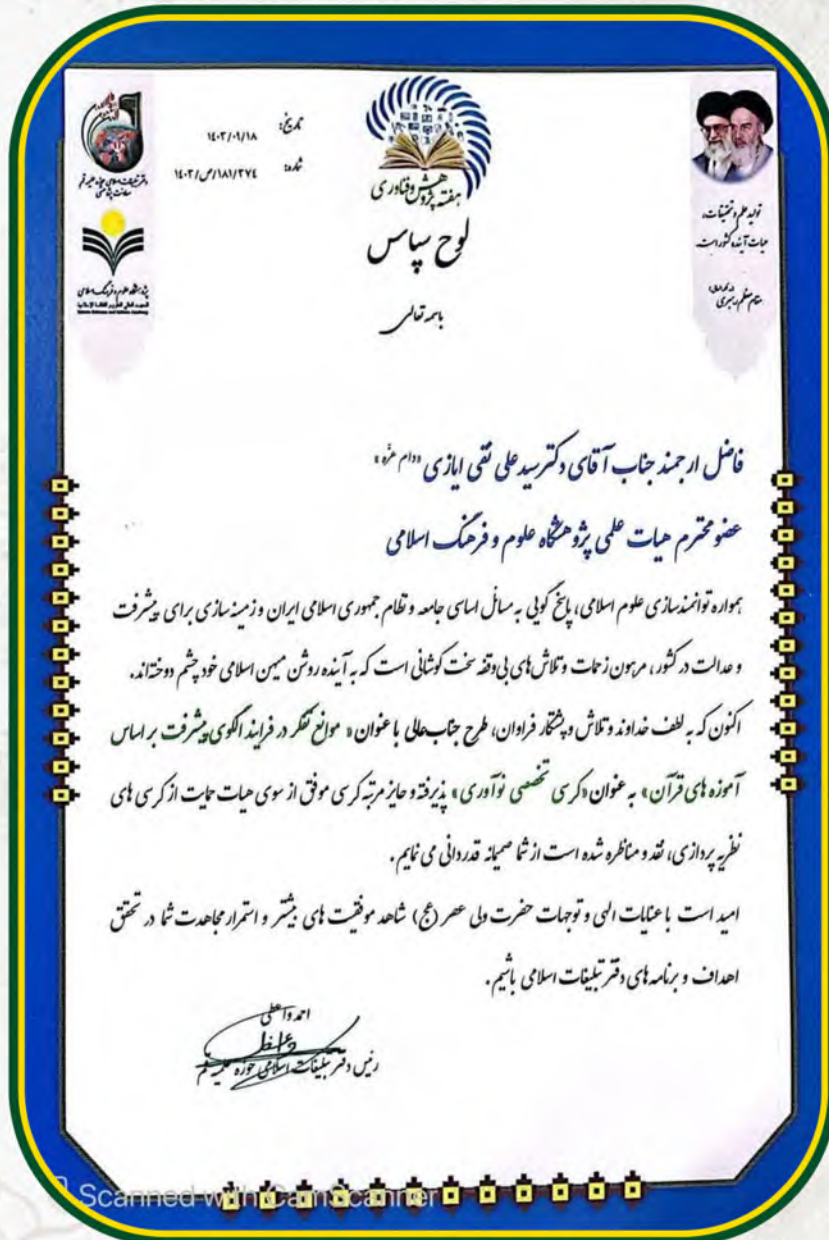 تاریخ: ۱٤۰۳/۰۹/۱۸
شماره: ۱٤۰۳/ص/۱۸۱/۳۷٤
دفتر تبلیغات اسلامی حوزه علمیه قم
معاونت پژوهشی
پژوهشگاه علوم و فرهنگ اسلامی
Islamic Sciences and Culture Academy
هفته پژوهش و فناوری
تولید علم و تحقیقات،
حیات آینده کشور است.
مقام معظم رهبری
لوح سپاس
باسمه تعالی
فاضل ارجمند جناب آقای دکتر سید علی نقی ایازی «دام عزّه»
عضو محترم هیات علمی پژوهشگاه علوم و فرهنگ اسلامی
همواره توانمندسازی علوم اسلامی، پاسخ گویی به مسائل اساسی جامعه و نظام جمهوری اسلامی ایران و زمینه سازی برای پیشرفت
و عدالت در کشور، مرهون زحمات و تلاش های بی وقفه سخت کوشانی است که به آینده روشن میهن اسلامی خود چشم دوخته اند.
اکنون که به لطف خداوند و تلاش و پشتکار فراوان، طرح جناب عالی با عنوان « موانع تفکر در فرایند الگوی پیشرفت بر اساس
آموزه های قرآن» به عنوان «کرسی تخصصی نوآوری» پذیرفته و حایز مرتبه کرسی موفق از سوی هیات حمایت از کرسی های
نظریه پردازی، نقد و مناظره شده است از شما صمیمانه قدردانی می نمایم.
امید است با عنایات الهی و توجهات حضرت ولی عصر (عج) شاهد موفقیت های بیشتر و استمرار مجاهدت شما در تحقق
اهداف و برنامه های دفتر تبلیغات اسلامی باشیم.
احمد واعظی
رئیس دفتر تبلیغات اسلامی حوزه علمیه قم
Scanned with CamScanner